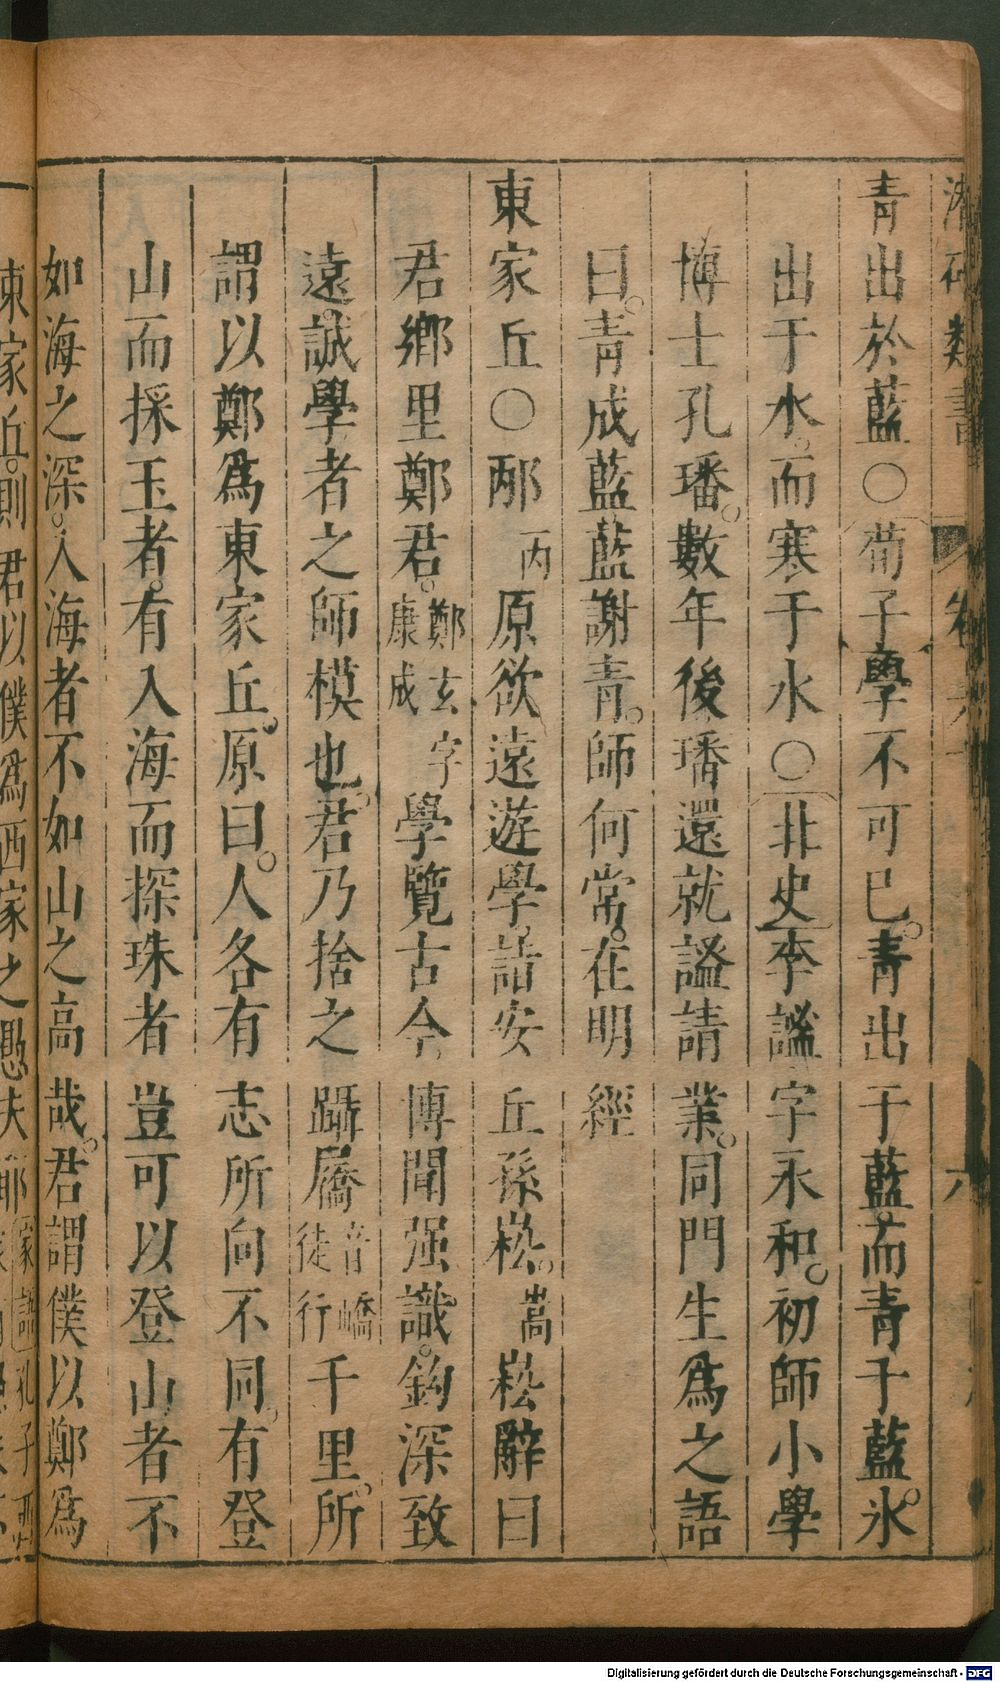 類書 卷 六
青出於藍○荀子學不可已。青出于藍。而青于藍。氷
出于水。而寒于水○北史李謐字永和。初師小學
博士孔璠。數年後璠還就謐請業。同門生爲之語
曰。青成藍藍謝青。師何常。在明經
東家丘○邴丙原欲遠遊學。詣安丘孫崧。嵩崧辭曰
君鄉里鄭君。鄭玄字康成學覽古今博聞强識。鉤深致
遠。誠學者之師模也。君乃捨之躡屩音嶠徒行千里。所
謂以鄭爲東家丘。原曰。人各有志所向不同。有登
山而採玉者。有入海而探珠者豈可以登山者不
如海之深。入海者不如山之高哉。君謂僕以鄭爲
東家丘。則君以僕爲西家之愚夫耶家語孔子西
Digitalisierung gefördert durch die Deutsche Forschungsgemeinschaft - DFG